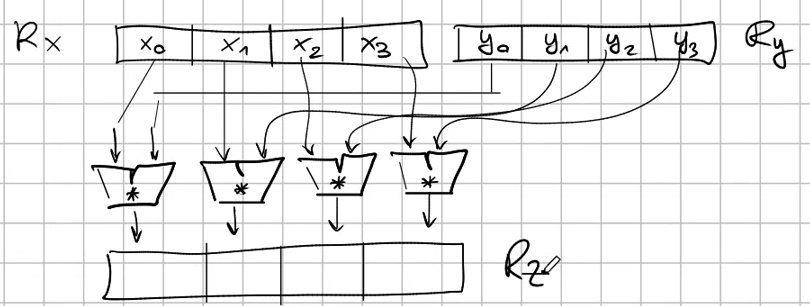 Rx x₀ x₁ x₂ x₃ y₀ y₁ y₂ y₃ Ry
* * * *
Rz